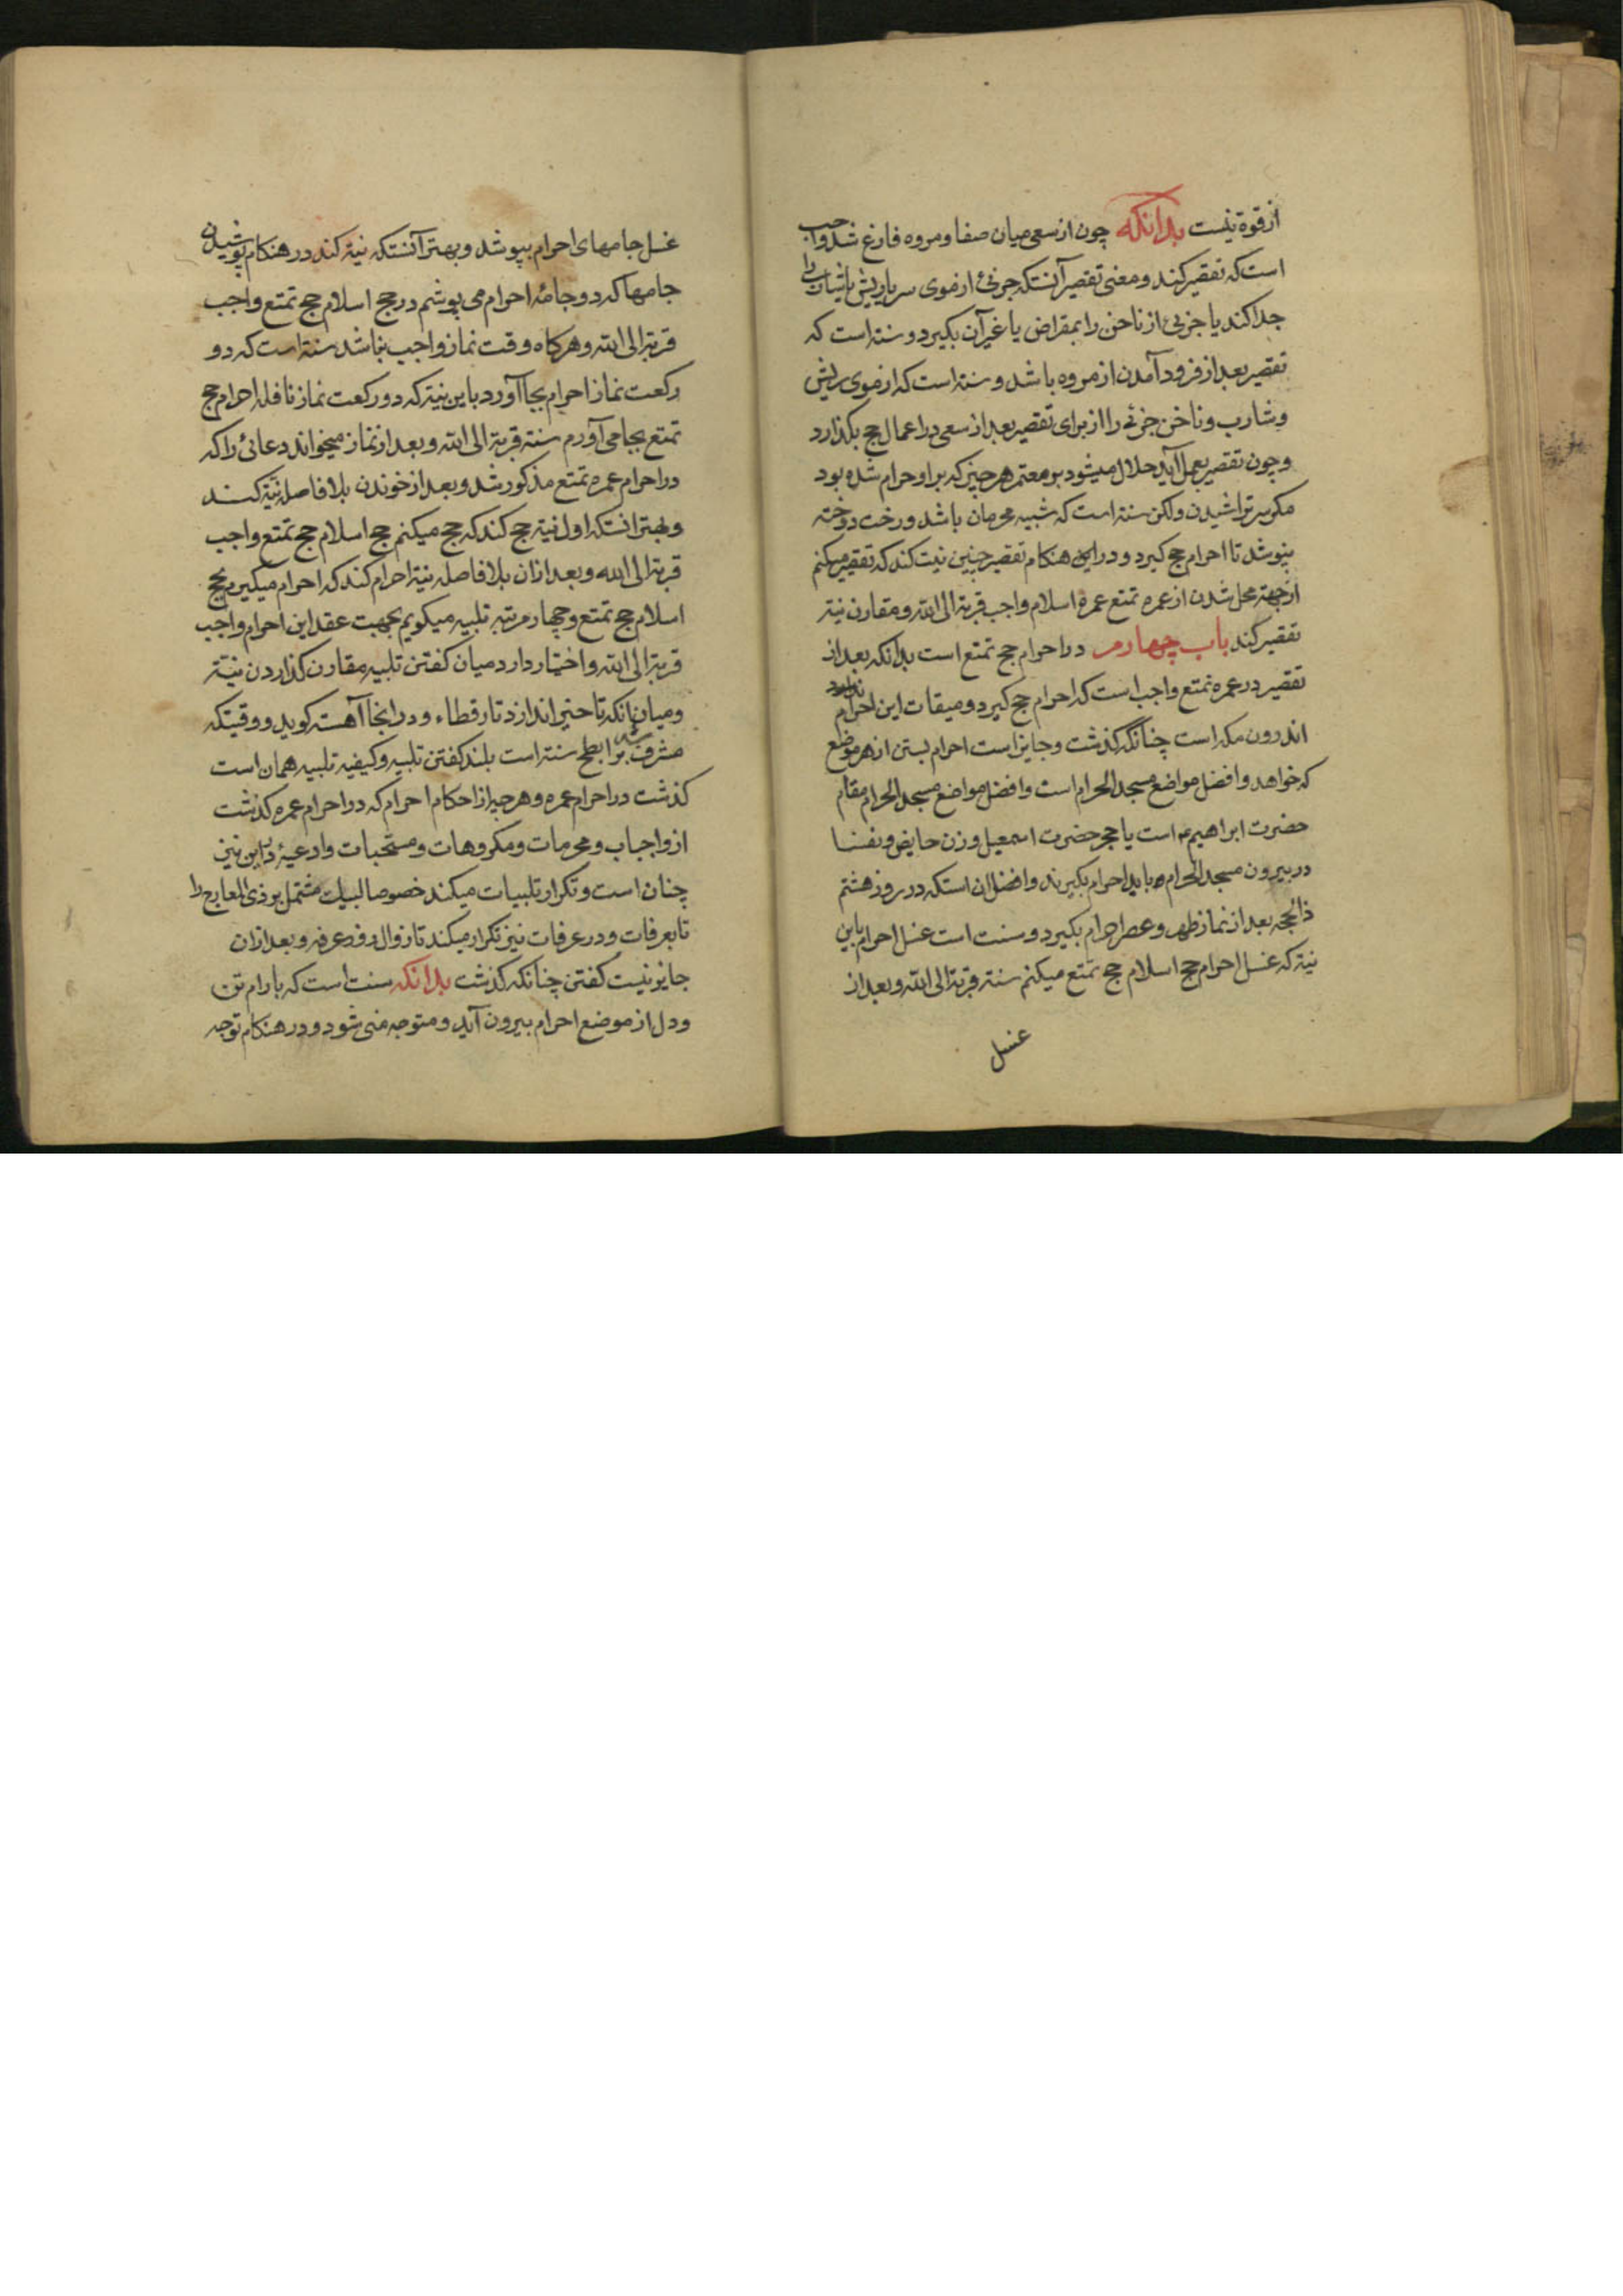 از قوة نیست بدانکه چون از سعی میان صفا و مروه فارغ شد واجب
است که تقصیر کند و معنی تقصیر آنستکه جزئی از موی سر یا ریش یا شارب را
جدا کند یا جزئی از ناخن را بمقراض یا غیر آن بکیرد و سنته است که
تقصیر بعد از فرود آمدن از مروه باشد و سنته است که از موی ریش
و شارب و ناخن جزئی را از برای تقصیر بعد از سعی در اعمال حج بکذارد
و چون تقصیر بعمل آید حلال میشود بر معتمر هر چیز که بر او حرام شده بود
مکر سر تراشیدن ولکن سنته است که شبیه محرمان باشد و رخت دوخته
نپوشد تا احرام حج کیرد و در این هنکام تقصیر چنین نیت کند که تقصیر میکنم
از جهته محل شدن از عمره تمتع عمرهٔ اسلام واجب قربة الی الله و مقارن نیة
تقصیر کند باب چهارم در احرام حج تمتع است بدانکه بعد از
تقصیر در عمره تمتع واجب است که احرام حج کیرد و میقات این احرام
اندرون مکه است چنانکه کذشت و جایز است احرام بستن از هر موضع
که خواهد و افضل مواضع مسجد الحرام است و افضل مواضع مسجد الحرام مقام
حضرت ابراهیم ع است یا حجر حضرت اسمعیل و زن حایض و نفسا
در بیرون مسجد الحرام باید احرام بکیرند و افضل ان استکه در روز هشتم
ذالحجه بعد از نماز ظهر و عصر احرام بکیرد و سنت است غسل احرام باین
نیة که غسل احرام حج اسلام حج تمتع میکنم سنته قربة الی الله و بعد از
غسل
غسل جامهای احرام بپوشد و بهتر آنستکه نیة کند در هنکام پوشیدن
جامها که دو جامهٔ احرام می پوشم در حج اسلام حج تمتع واجب
قربة الی الله و هرکاه وقت نماز واجب نباشد سنته است که دو
رکعت نماز احرام بجا آورد باین نیة که دو رکعت نماز نافله احرام حج
تمتع بجا می آورم سنته قربة الی الله و بعد از نماز میخواند دعائی را که
در احرام عمره تمتع مذکور شد و بعد از خوندن بلا فاصله نیة کند
و بهتر انستکه اول نیة حج کند که حج میکنم حج اسلام حج تمتع واجب
قربة الی الله و بعد از ان بلا فاصله نیة احرام کند که احرام میکیرم بحج
اسلام حج تمتع و چهار مرتبه تلبیه میکویم بجهت عقد این احرام واجب
قربة الی الله و اختیار دارد میان کفتن تلبیه مقارن کذاردن نیة
و میان انکه تاخیر اندازد تا رقطاء و در انجا آهسته کوید و وقتیکه
مشرف شد بر ابطح سنته است بلند کفتن تلبیه و کیفیه تلبیه همان است
کذشت در احرام عمره و هر چیز از احکام احرام که در احرام عمره کذشت
از واجبات و محرمات و مکروهات و مستحبات و ادعیهٔ در این نیز
چنان است و تکرار تلبیات میکند خصوصا لبیک مشتمل بر ذی المعارج را
تا بعرفات و در عرفات نیز تکرار میکند تا زوال روز عرفه و بعد از ان
جایز نیست کفتن چنانکه کذشت بدانکه سنت است که بارام تن
و دل از موضع احرام بیرون آید و متوجه منی شود و در هنکام توجه